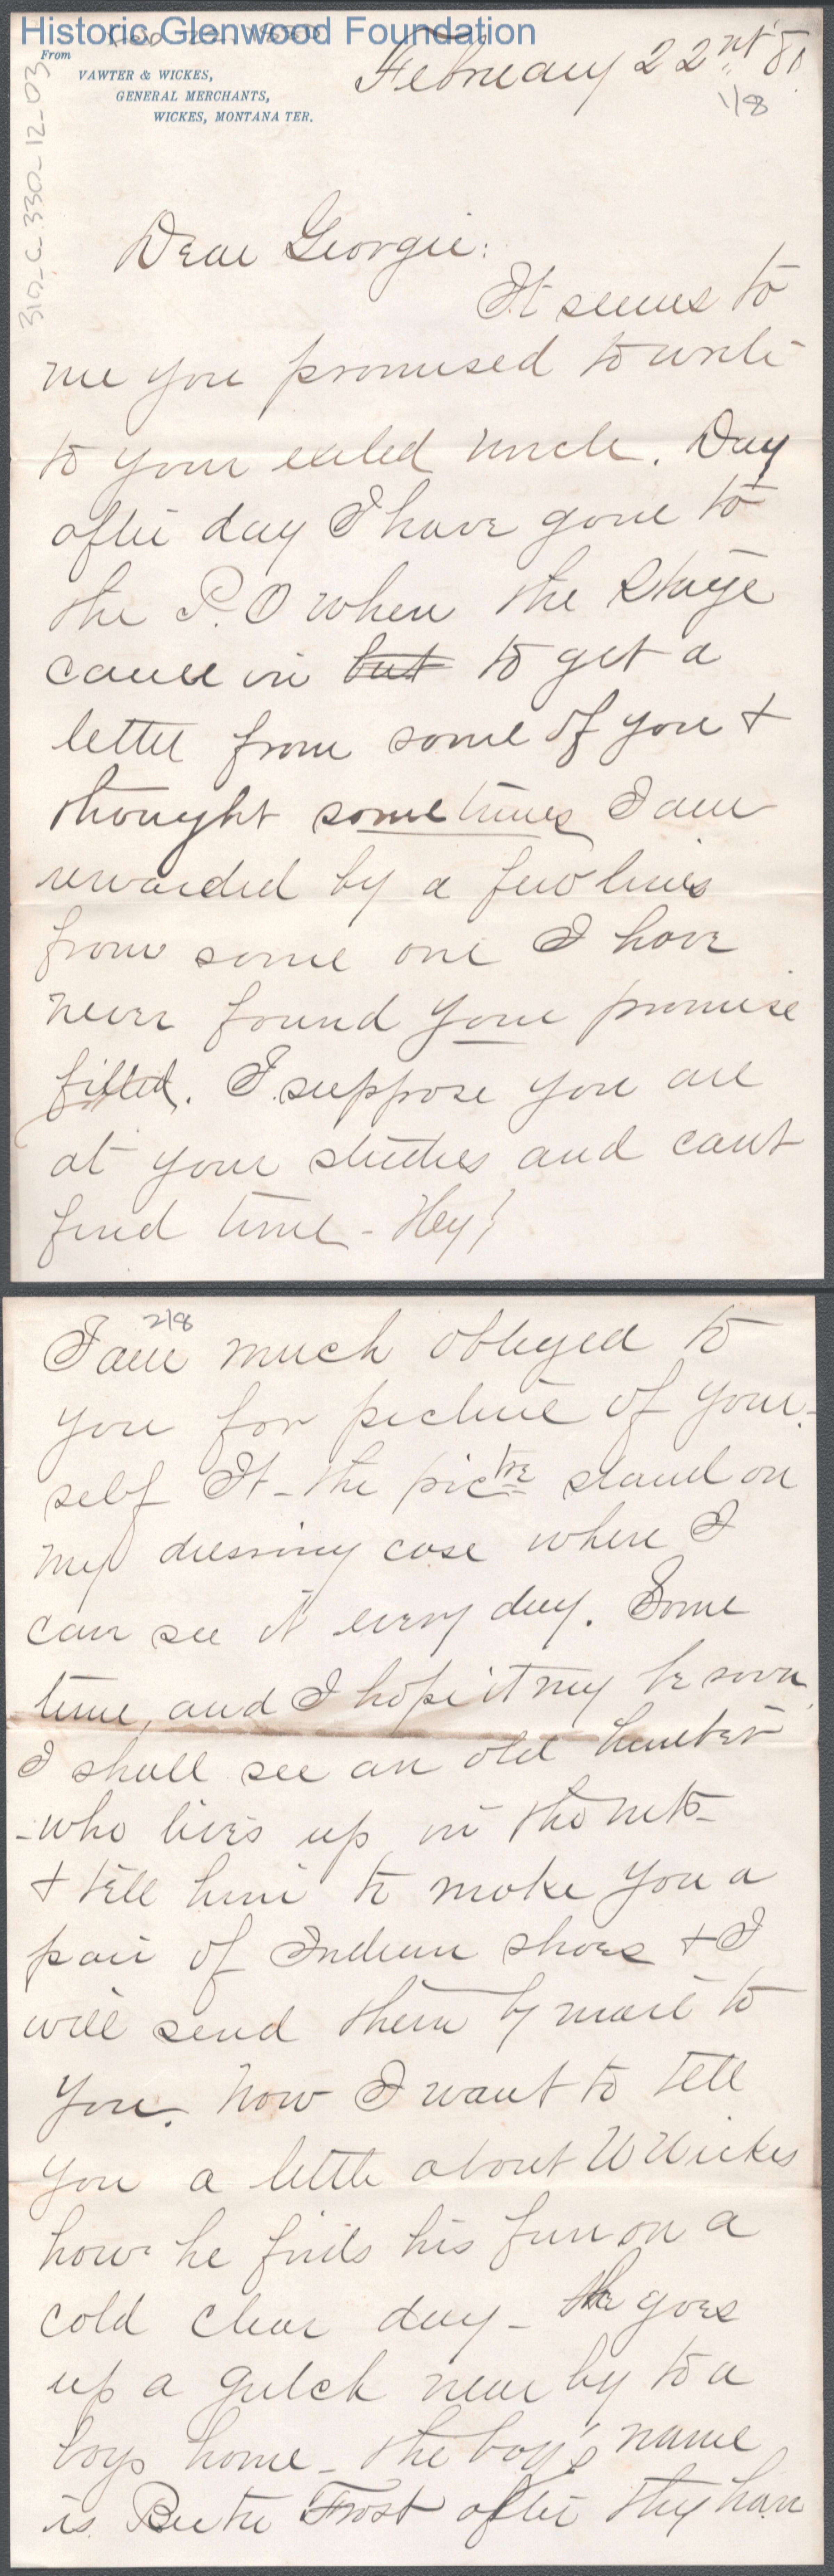 Historic Glenwood Foundation
From
VAWTER & WICKES,
GENERAL MERCHANTS,
WICKES, MONTANA TER.
310-G-330-12-03
February 22nd 80
1/8
Dear Georgie:
It seems to
me you promised to write
to your exiled Uncle. Day
after day I have gone to
the P.O when the Stage
came in but to get a
letter from some of you &
thought sometimes I am
rewarded by a few lines
from some one I have
never found your promise
filled. I suppose you are
at your studies and cant
find time - Hey?
2/8
I am much obliged to
you for picture of your-
self It - the pictre stand on
my dressing case where I
can see it every day. Some
time, and I hope it my be soon
I shall see an old hunter
- who lives up in the mts -
& tell him to make you a
pair of Indian shoes & I
will send them by mail to
you. Now I want to tell
you a little about W Wickes
how he finds his fun on a
cold clear day - He goes
up a gulch near by to a
boys home - the boy's name
is Frost after they have